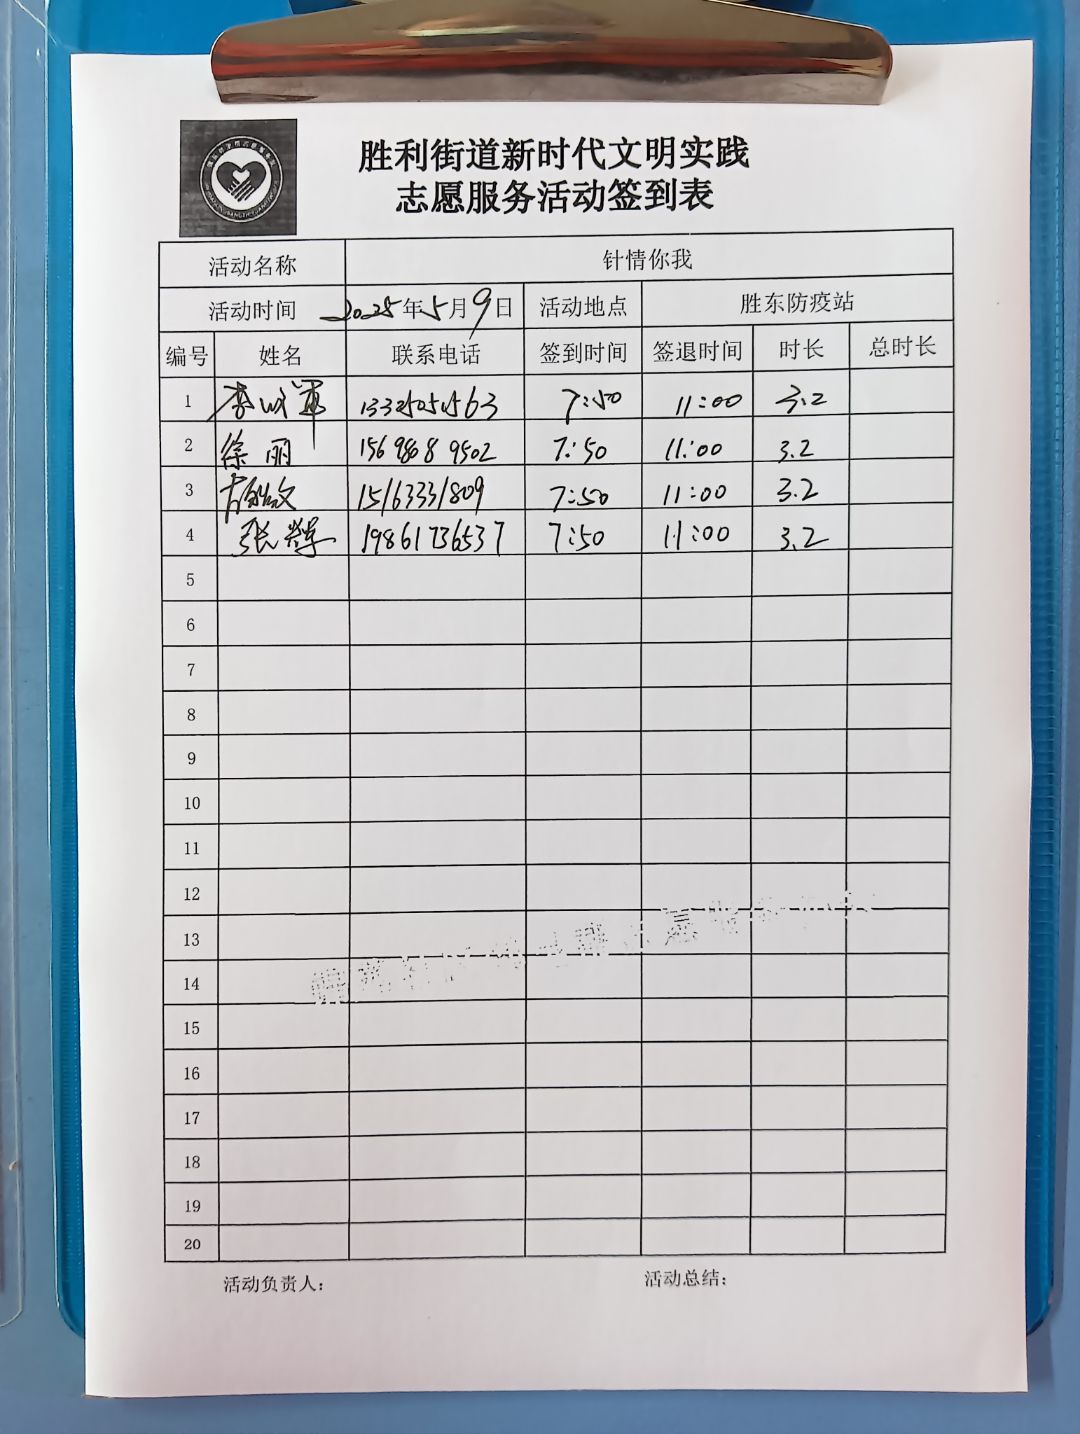 胜利街道新时代文明实践
志愿服务活动签到表
活动名称 针情你我
活动时间 2025年5月9日 活动地点 胜东防疫站
编号 姓名 联系电话 签到时间 签退时间 时长 总时长
1 李 军 13325050563 7:50 11:00 3.2
2 徐丽 156 9868 9502 7:50 11:00 3.2
3 15163331809 7:50 11:00 3.2
4 张 19861736537 7:50 11:00 3.2
5
6
7
8
9
10
11
12
13
14
15
16
17
18
19
20
活动负责人:
活动总结: